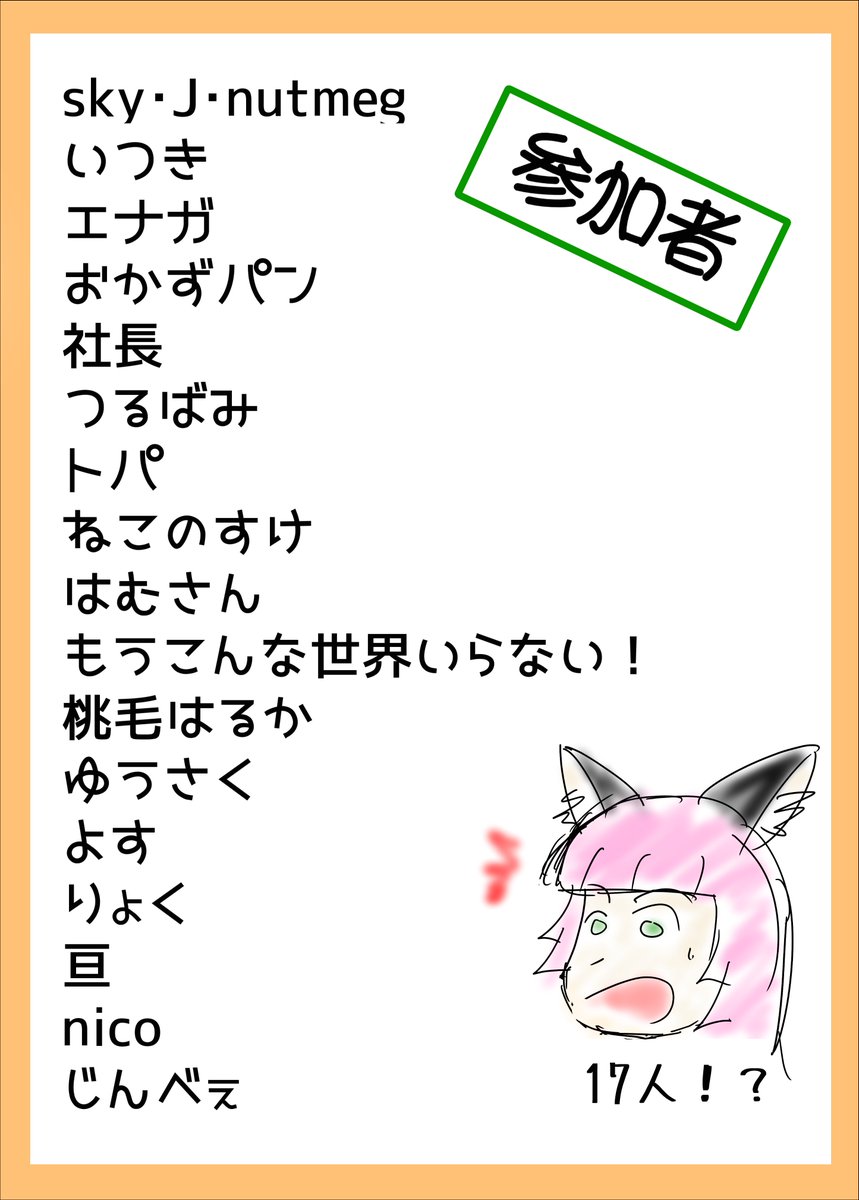 参加者
sky・J・nutmeg
いつき
エナガ
おかずパン
社長
つるばみ
トパ
ねこのすけ
はむさん
もうこんな世界いらない！
桃毛はるか
ゆうさく
よす
りょく
亘
nico
じんべぇ
17人！？